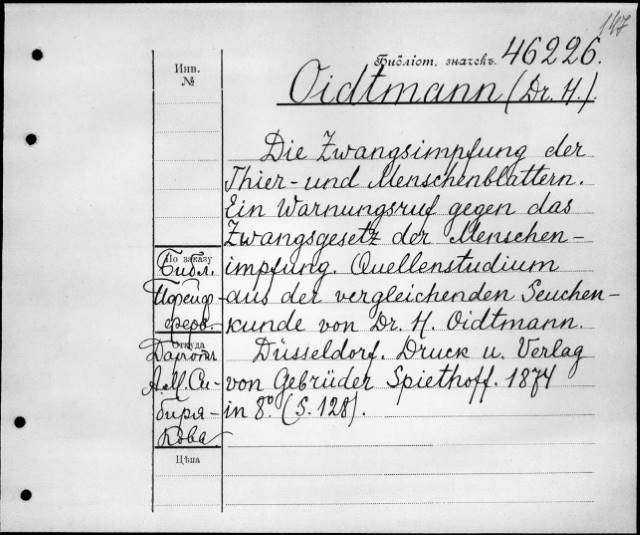 147
Библіот. значекъ 46226.
Инв.
№
Oidtmann (Dr. H.).
Die Zwangsimpfung der
Thier- und Menschenblattern.
Ein Warnungsruf gegen das
Zwangsgesetz der Menschen-
impfung. Quellenstudium
aus der vergleichenden Seuchen-
kunde von Dr. H. Oidtmann.
Düsseldorf. Druck u. Verlag
von Gebrüder Spiethoff. 1874
in 8º. (S. 128).
По заказу
Библ.
Откуда
А. М. Си-
биря-
кова.
Цѣна